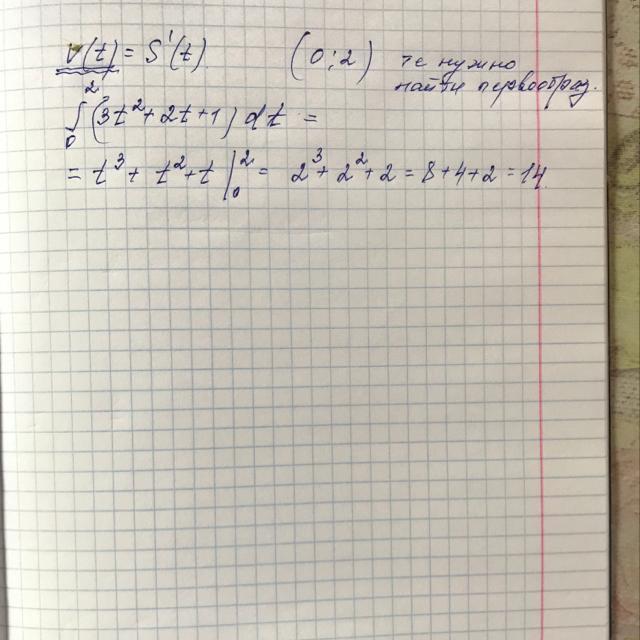 v(t) = S'(t) (0;2) те нужно
найти первообраз.
∫₀² (3t² + 2t + 1) dt =
= t³ + t² + t |₀² = 2³ + 2² + 2 = 8 + 4 + 2 = 14.